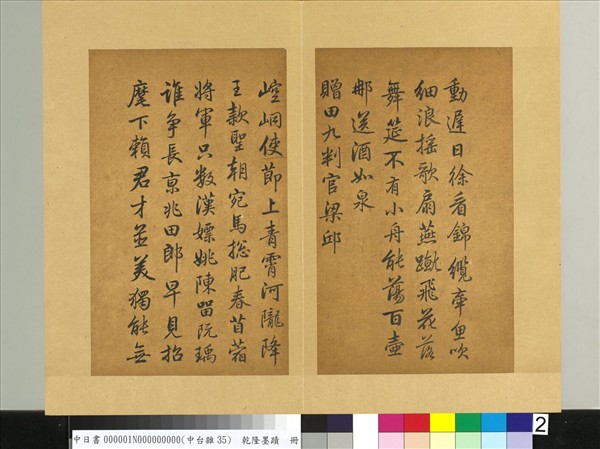 動遲日徐看錦纜牽魚吹
細浪搖歌扇燕蹴飛花落
舞筵不有小舟能蕩百壺
那送酒如泉
贈田九判官梁邱
崆峒使節上青霄河隴降
王款聖朝宛馬總肥春苜蓿
將軍只數漢嫖姚陳留阮瑀
誰爭長京兆田郎早見招
麾下賴君才並美獨能無
中日書 000001N000000000(中台雜 35) 乾隆墨蹟 冊
2